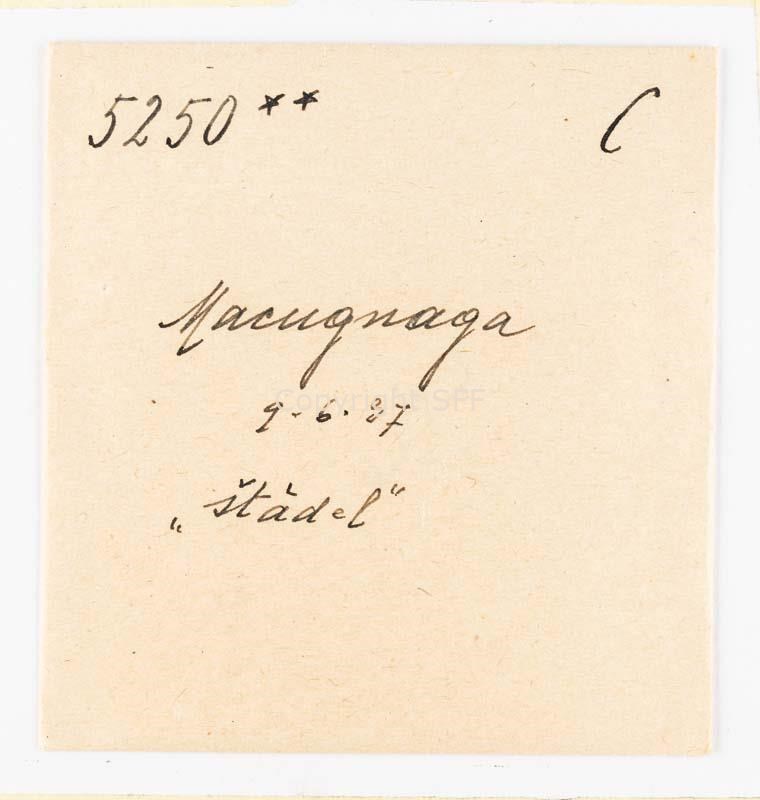 5250** C
Macugnaga
Copyright SPF
9.6.27
„štàdel“